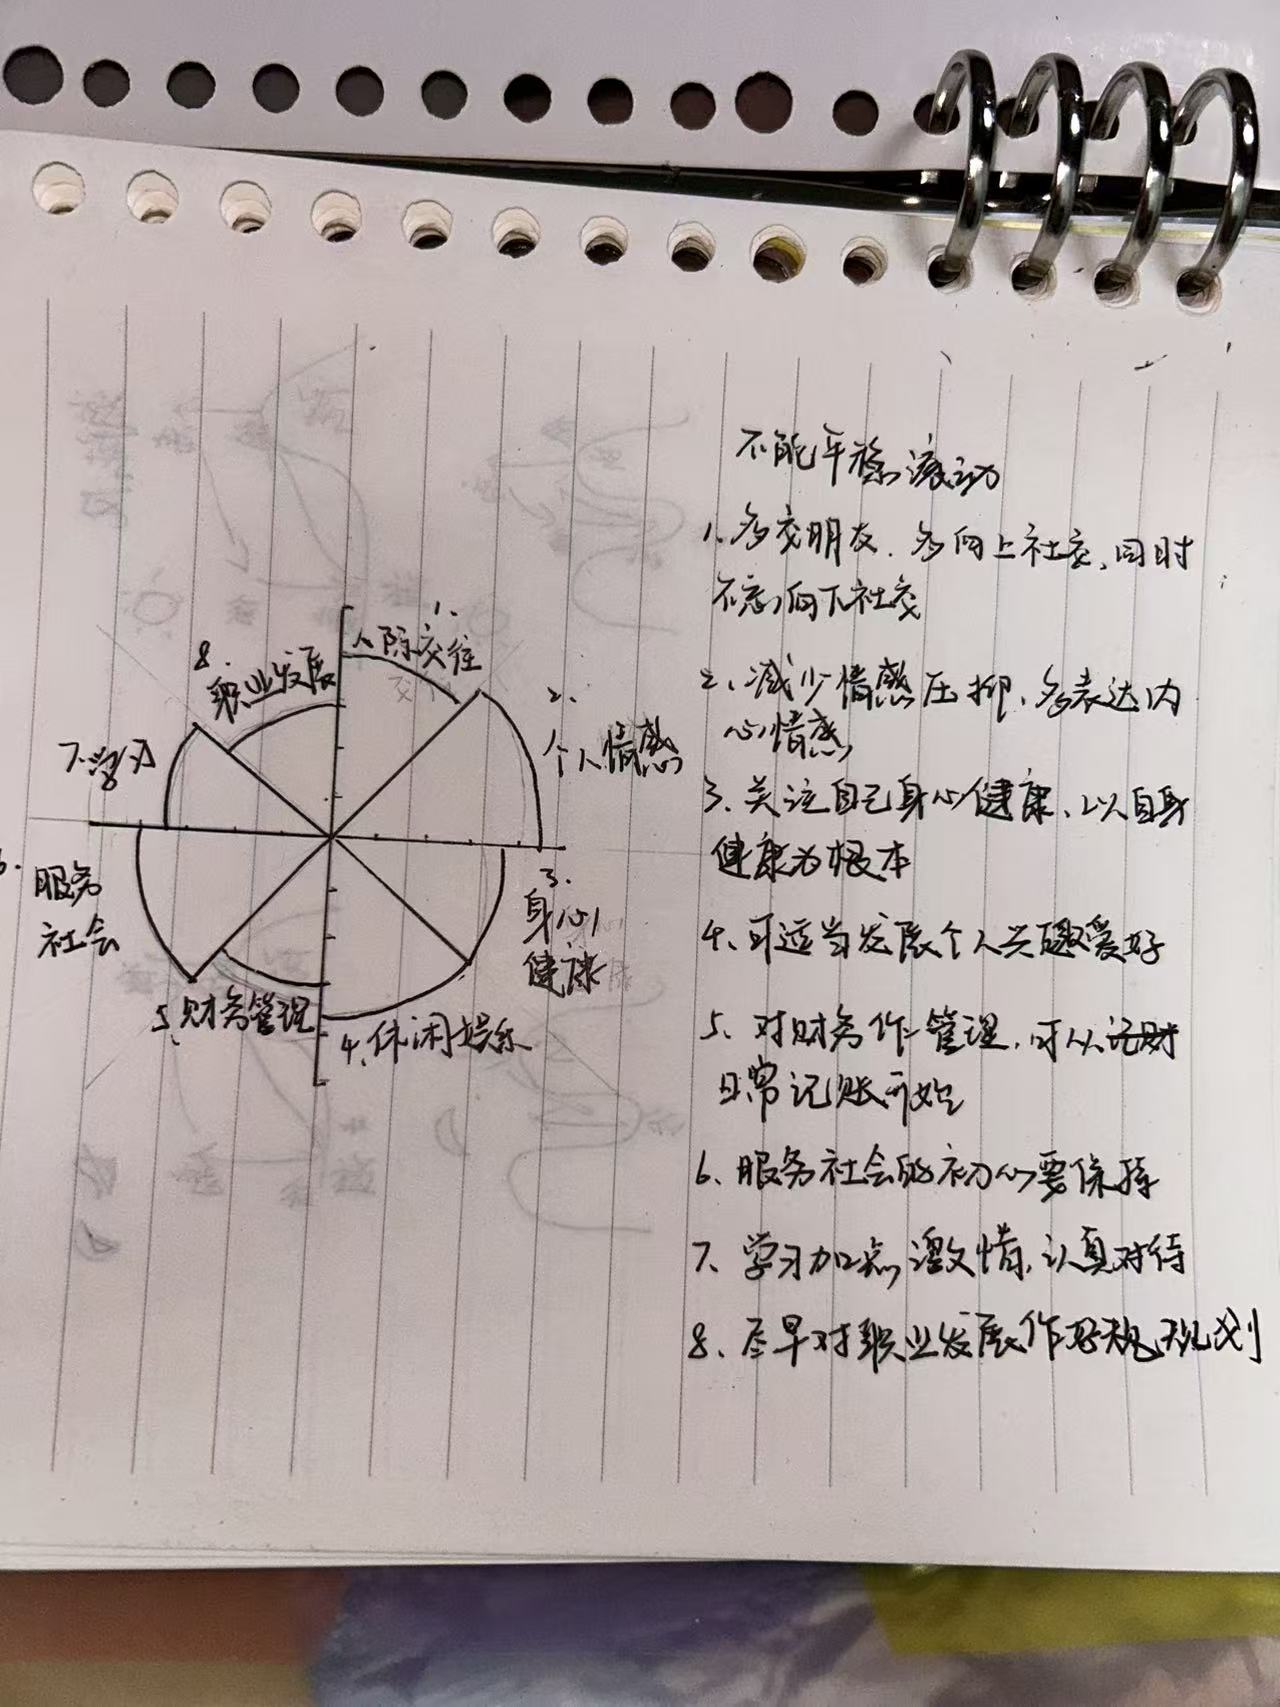 1.
人际交往
2.
个人情感
3.
身心
健康
4、休闲娱乐
5、财务管理
6.
服务
社会
7.学习
8.
职业发展
不能平稳滚动
1、多交朋友、多向上社交,同时
不忘向下社交
2、减少情感压抑、多表达内
心情感
3、关注自己身心健康、以自身
健康为根本
4、可适当发展个人兴趣爱好
5、对财务作管理,可从记财
日常记账开始
6、服务社会的初心要保持
7、学习加点激情,认真对待
8、尽早对职业发展作好规规划